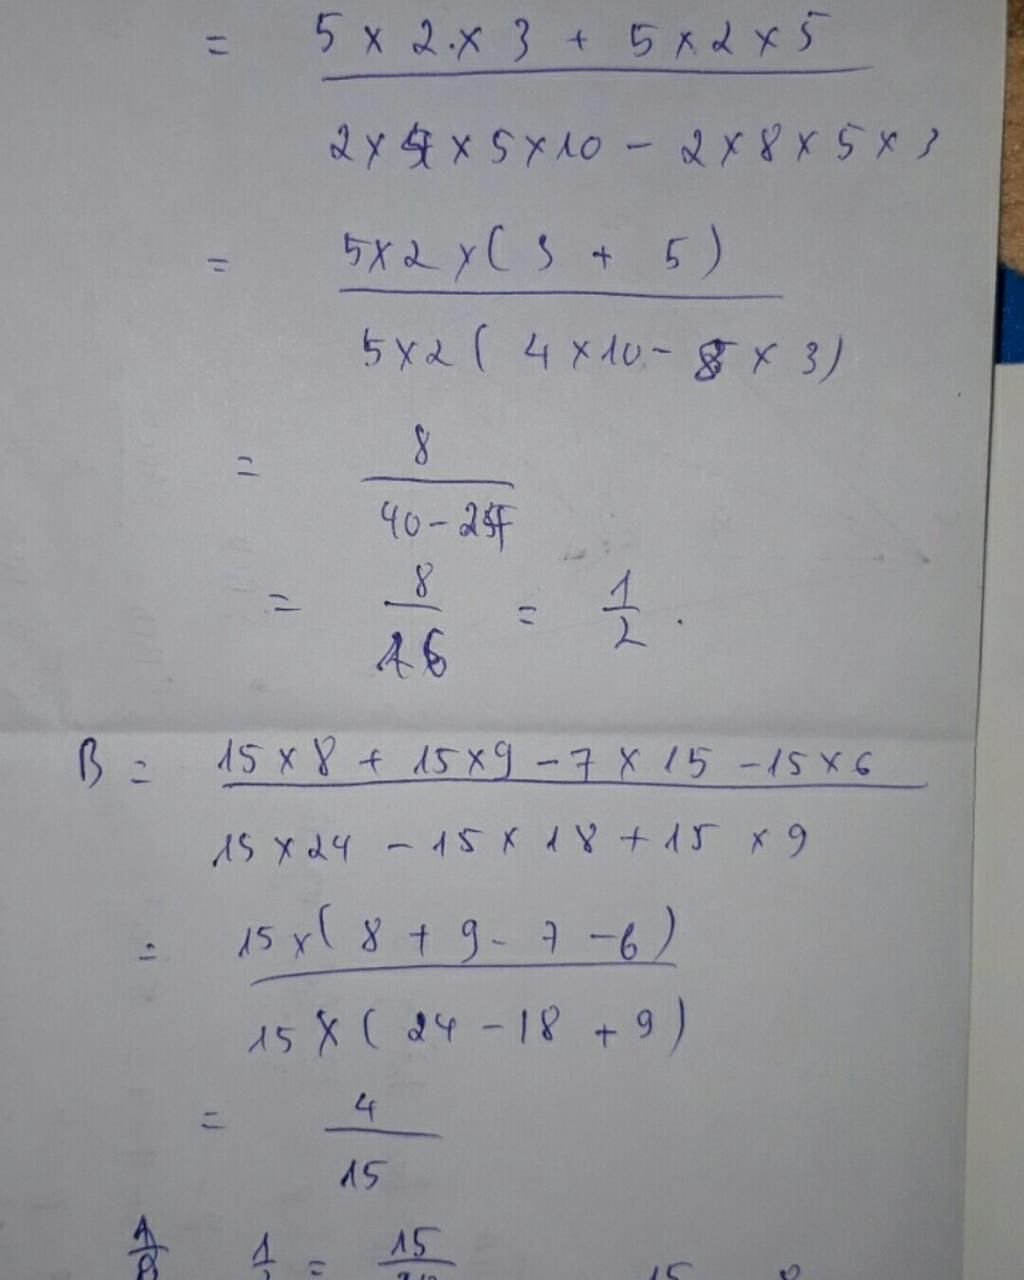 = 5 × 2 . × 3 + 5 × 2 × 5
2 × 4 × 5 × 10 − 2 × 8 × 5 × 3
= 5 × 2 × ( 3 + 5 )
5 × 2 ( 4 × 10 − 8 × 3 )
= 8
40 − 24
= 8 = 1 .
16 2
B = 15 × 8 + 15 × 9 − 7 × 15 − 15 × 6
15 × 24 − 15 × 18 + 15 × 9
= 15 × ( 8 + 9 − 7 − 6 )
15 × ( 24 − 18 + 9 )
= 4
15
A 1 = 15
B